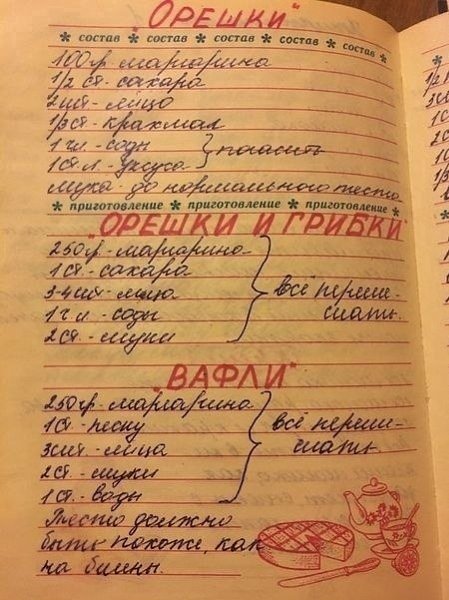 "ОРЕШКИ"
* состав * состав * состав * состав * состав *
100 гр. маргарина
1/2 ст. сахара
2 шт. яйцо
1/3 ст. крахмал
1 ч.л. соды } погасить
1 ст. л. уксуса
мука до нормального теста
* приготовление * приготовление * приготовление *
"ОРЕШКИ И ГРИБКИ"
250 гр. маргарина
1 ст. сахара
3-4 шт. яйца } всё переме-
1 ч. л. соды шать.
2 ст. муки
"ВАФЛИ"
250 гр. маргарина
1 ст. песку } всё переме-
3 шт. яйца шать.
2 ст. муки
1 ст. воды
Тесто должно
быть похоже, как
на блины.